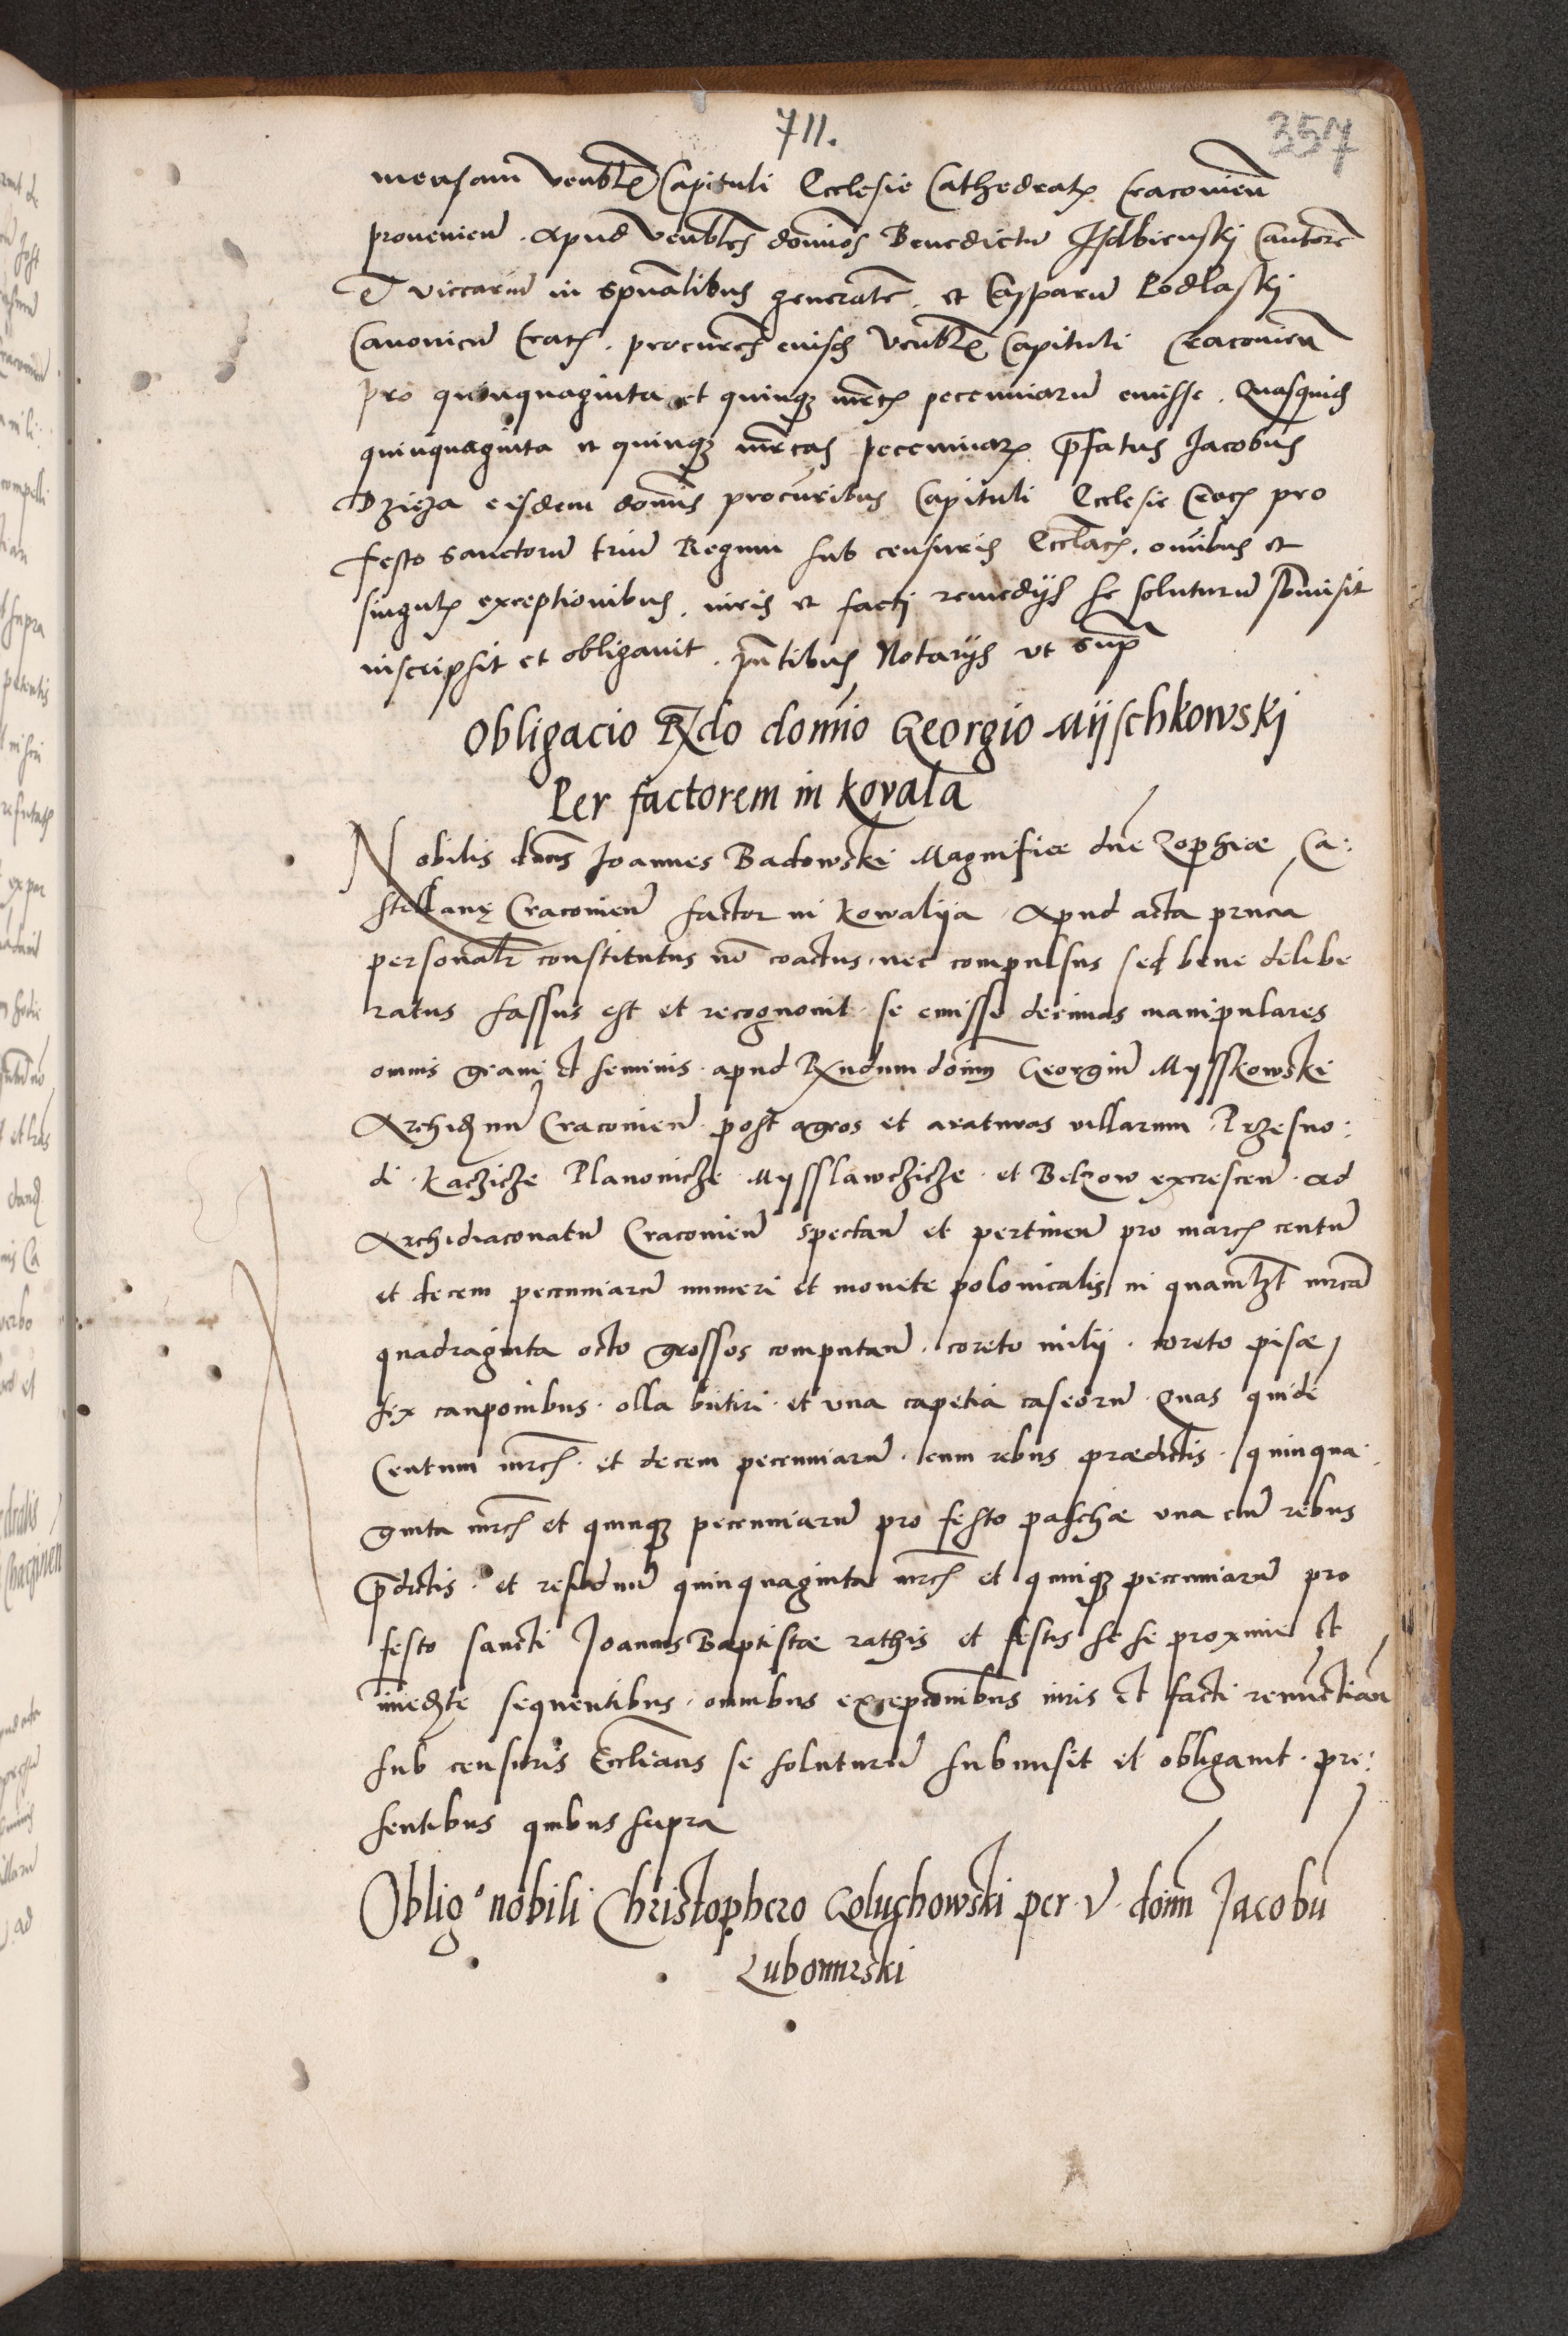 711.
357
mensam venbl Capituli Ecclesie Cathedral Cracovien
provenien. apud venbles dominos Benedictu Isdbienskj Cantore
et viccariu in spualibus generale. et Casparu Podlaskj
Canonicu Crac. procures eiusd venbl Capituli Cracovien
pro quinquaginta et quinq mrcs pecenniaru emisse. Quasquid
quinquaginta et quinq mrcas pecenniar prefatus Jacobus
Dzieza eisdem domis procuribus Capituli Ecclesie Crac pro
festo sanctoru triu Regum sub censuris Ecclac. omibus et
singul exceptionibus. iuris et facti remedijs se soluturu somisit
inscripsit et obligauit. pntibus Notarijs vt sup
Obligacio Rdo domio Georgio Mijschkowskj
Per factorem in Kovala
Nobilis dns Joannes Badowski Magnifice dne Zophiæ Ca:
stellanę Cracovien factor in Kowalija. Apud acta prncia
personalr constitutus no coactus. nec compulsus sed bene delibe
ratus fassus est et recognouit. se emisse decimas manipulares
omnis grani et seminis. apud Rndum domu Georgiu Mysskowski
Archidnu Cracovien. post agros et araturas villarum. Przesno:
di. Kaczicze Planowicze. Mysslawczicze. et Belzow excrescen. ad
Archidiaconatu Cracovien spectan et pertinen pro marcs centu
et decem pecenniaru numeri et monete polonicalis in quamlzt mrca
quadraginta octo grossos computan. coreto milij. coreto pisæ
sex canponibus. olla butiri. et vna capetia caseoru. Quas quide
Centum mrcs. et decem pecenniaru. cum rebus prædictis. quinqua:
ginta mrcs et quinq pecenniaru pro festo paschæ vna cu rebus
predictis. et residuu quinquaginta mrcs et quinq pecenniaru pro
festo sancti Joannis Baptistæ rathis et festis se se proxime et
imediate sequentibus. omnibus excepconibus iuris et facti renunctian
sub censuris Eccleans se soluturu submisit et obligauit. pre:
sentibus quibus supra
Oblig° nobili Christophero Goluchowski per. V. doim Jacobu
Lubomirski